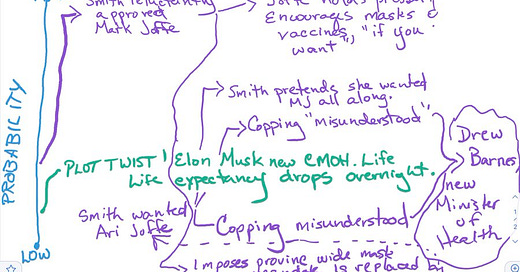 Smith reluctantly
approved
Mark Joffe
Encourages masks &
vaccines, "if you
want"
PROBABILITY
LOW
Smith pretends she wanted
MJ all along.
Copping "misunderstood"
PLOT TWIST! Elon Musk new CMOH. Life
Life expectancy drops overnight.
Smith wanted
Ari Joffe
Copping misunderstood
Drew
Barnes
new
Minister
of
Health
Imposes province wide mask
is replaced by
1
2